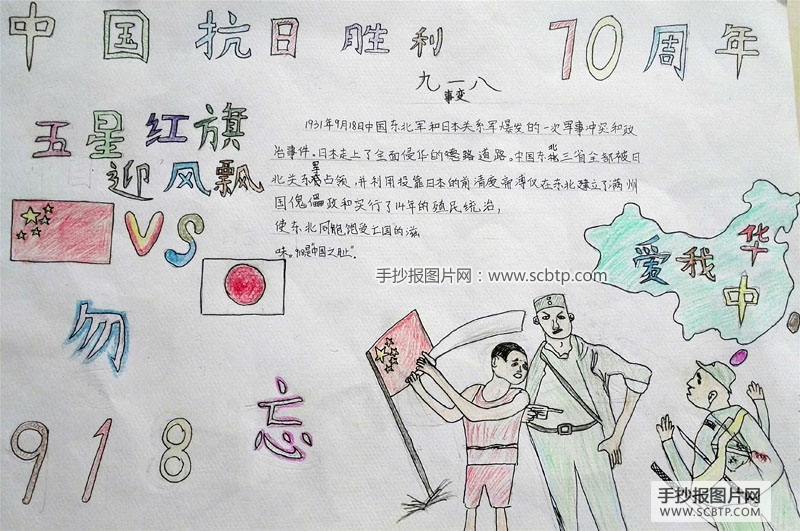 中国抗日胜利70周年
九一八
事变
五星红旗
迎风飘
VS
1931年9月18日中国东北军和日本关东军爆发的一次军事冲突和政
治事件。日本走上了全面侵华的道路。中国东北三省全部被日
北关东占领,并利用投靠日本的前清废帝溥仪在东北建立了满州
国傀儡政和实行了14年的殖民统治,
使东北同胞饱受亡国的滋
味。"中国之耻"。
手抄报图片网:www.scbtp.com
爱我
华
中
勿
忘
918
手抄报图片网
WWW.SCBTP.COM